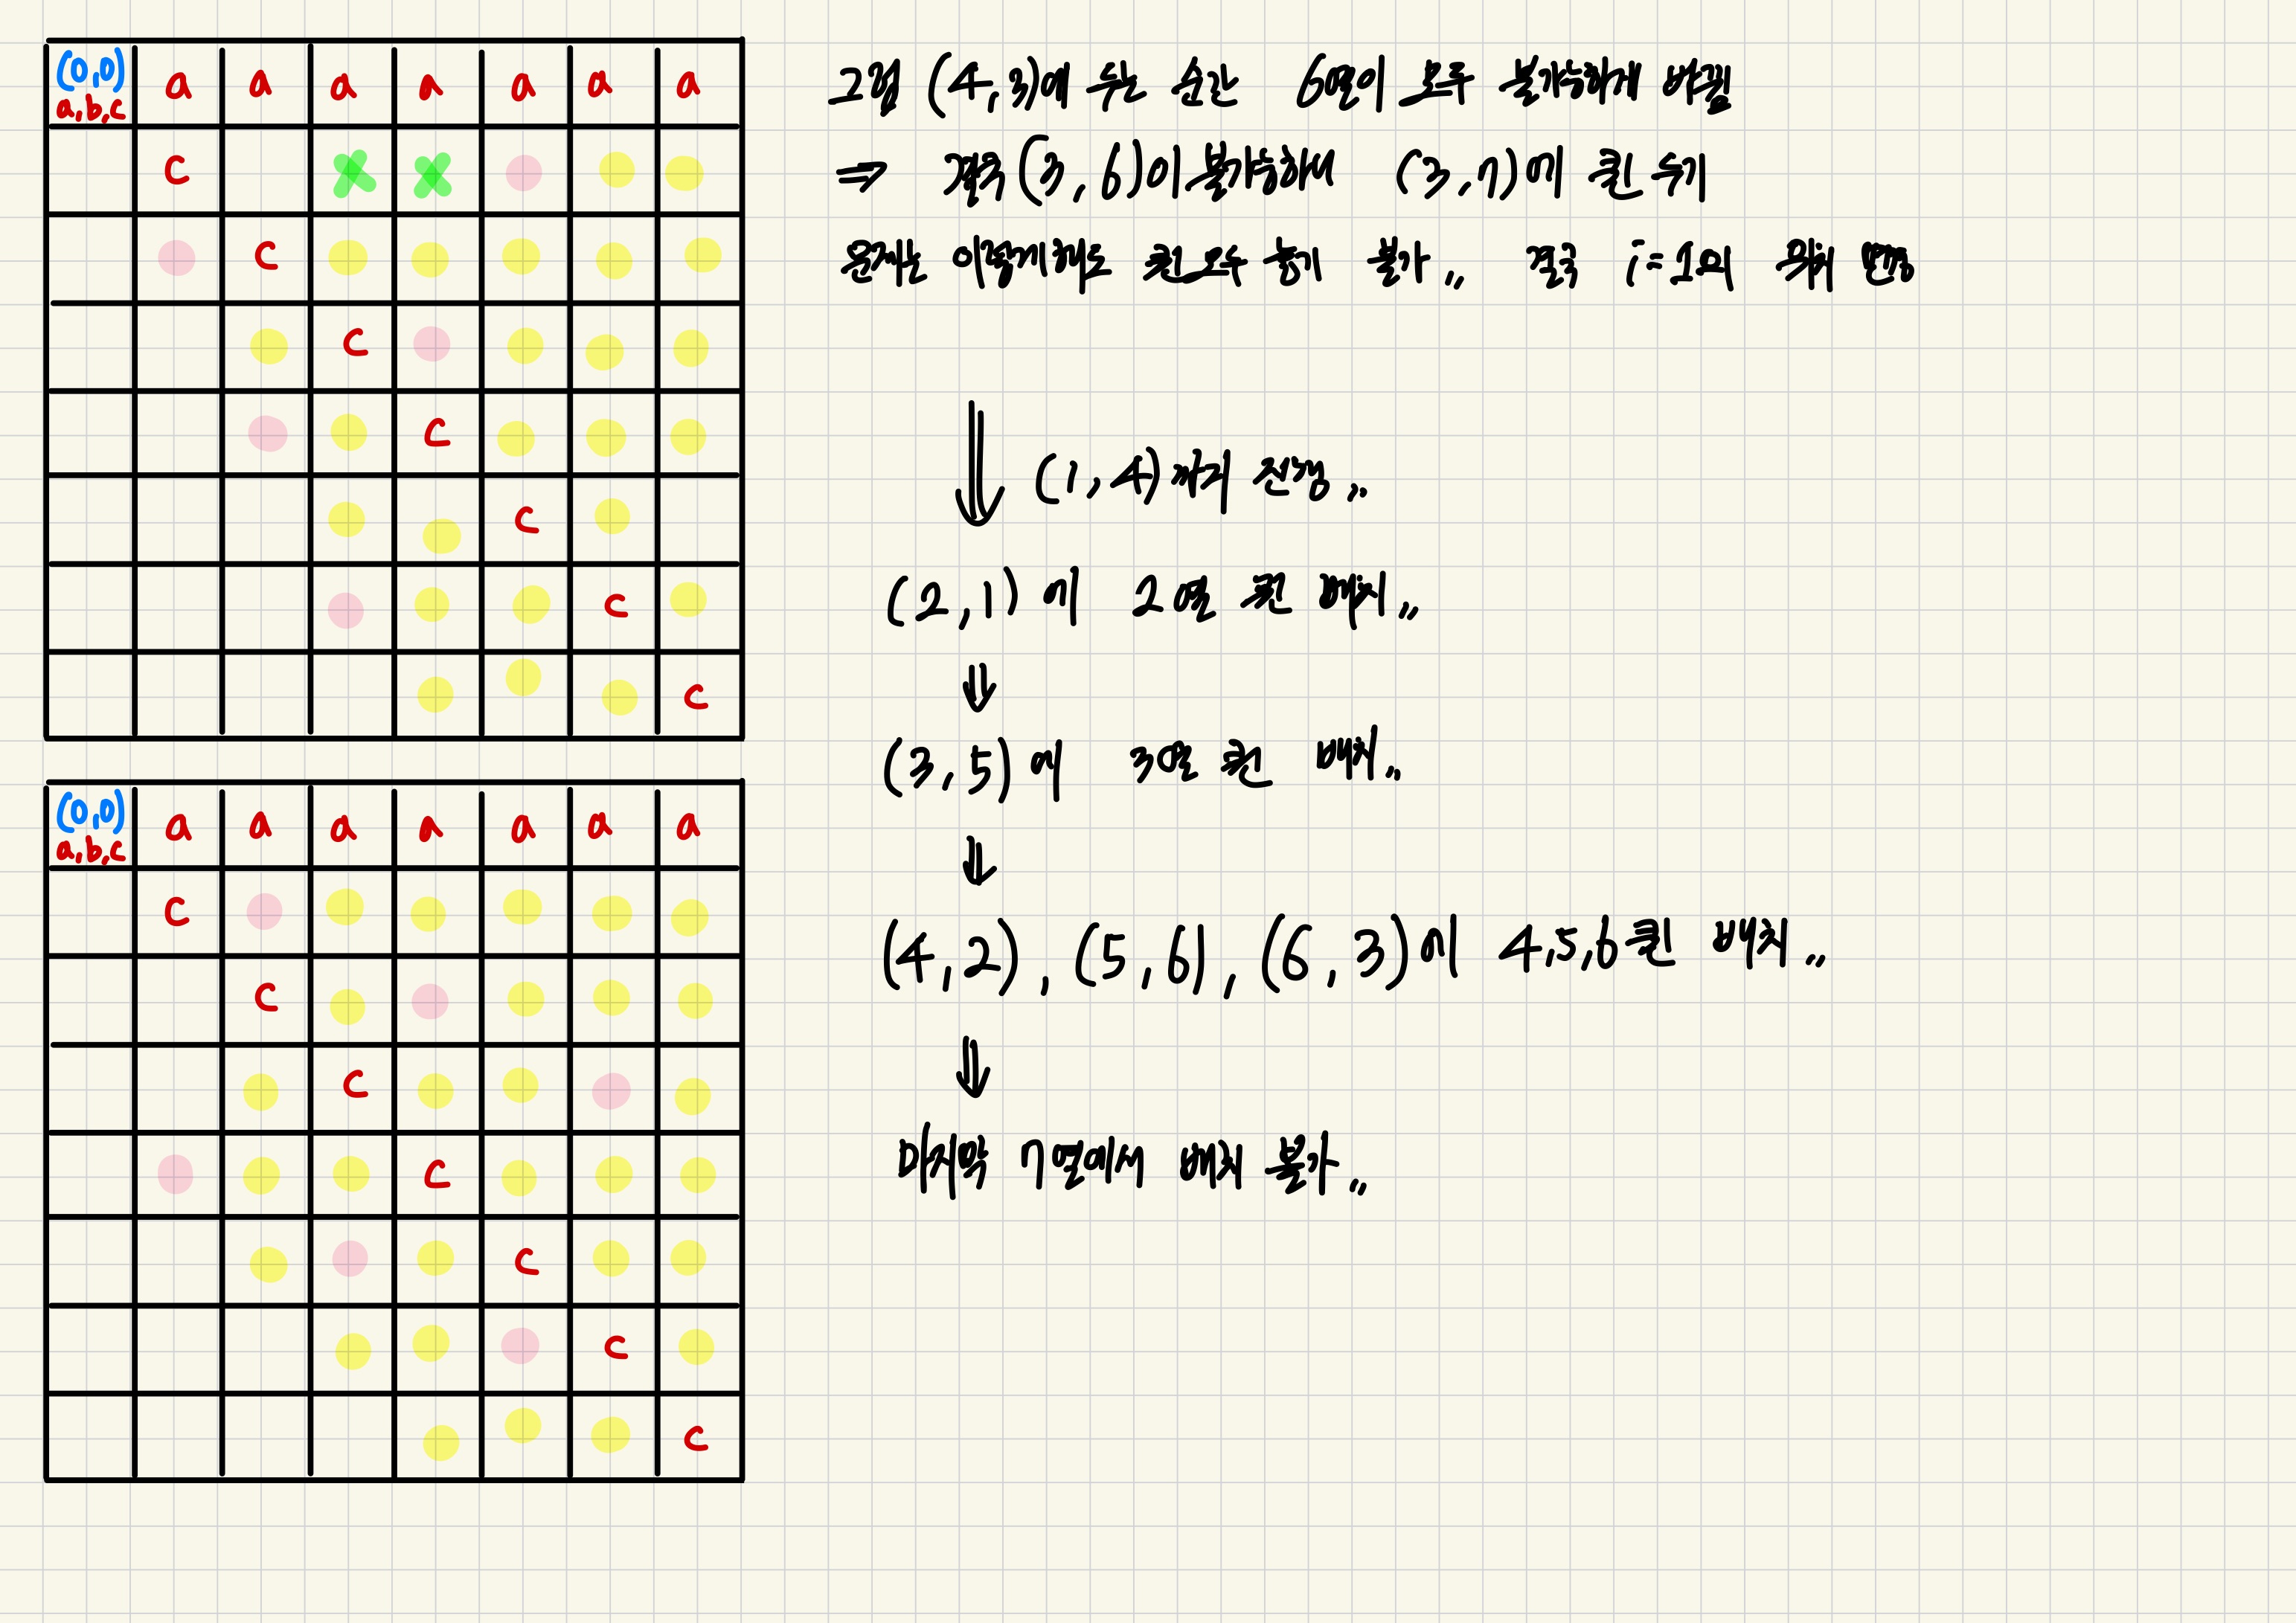 (0,0) a a a a a a a
a,b,c
c
c
c
c
c
c
c
(0,0) a a a a a a a
a,b,c
c
c
c
c
c
c
c
(4,3)에 두는 순간 6열이 모두 불가능하게 바뀜
⇒ 결국 (3,6)이 불가능해 (3,7)에 퀸 두기
퀸 모두 놓기 불가,, 결국 i=1의 위치 변경
(1,4)까지 진행,,
(2,1)에 2열 퀸 배치,,
(3,5)에 3열 퀸 배치,,
(4,2), (5,6), (6,3)에 4,5,6 퀸 배치,,
마지막 7열에서 배치 불가,,